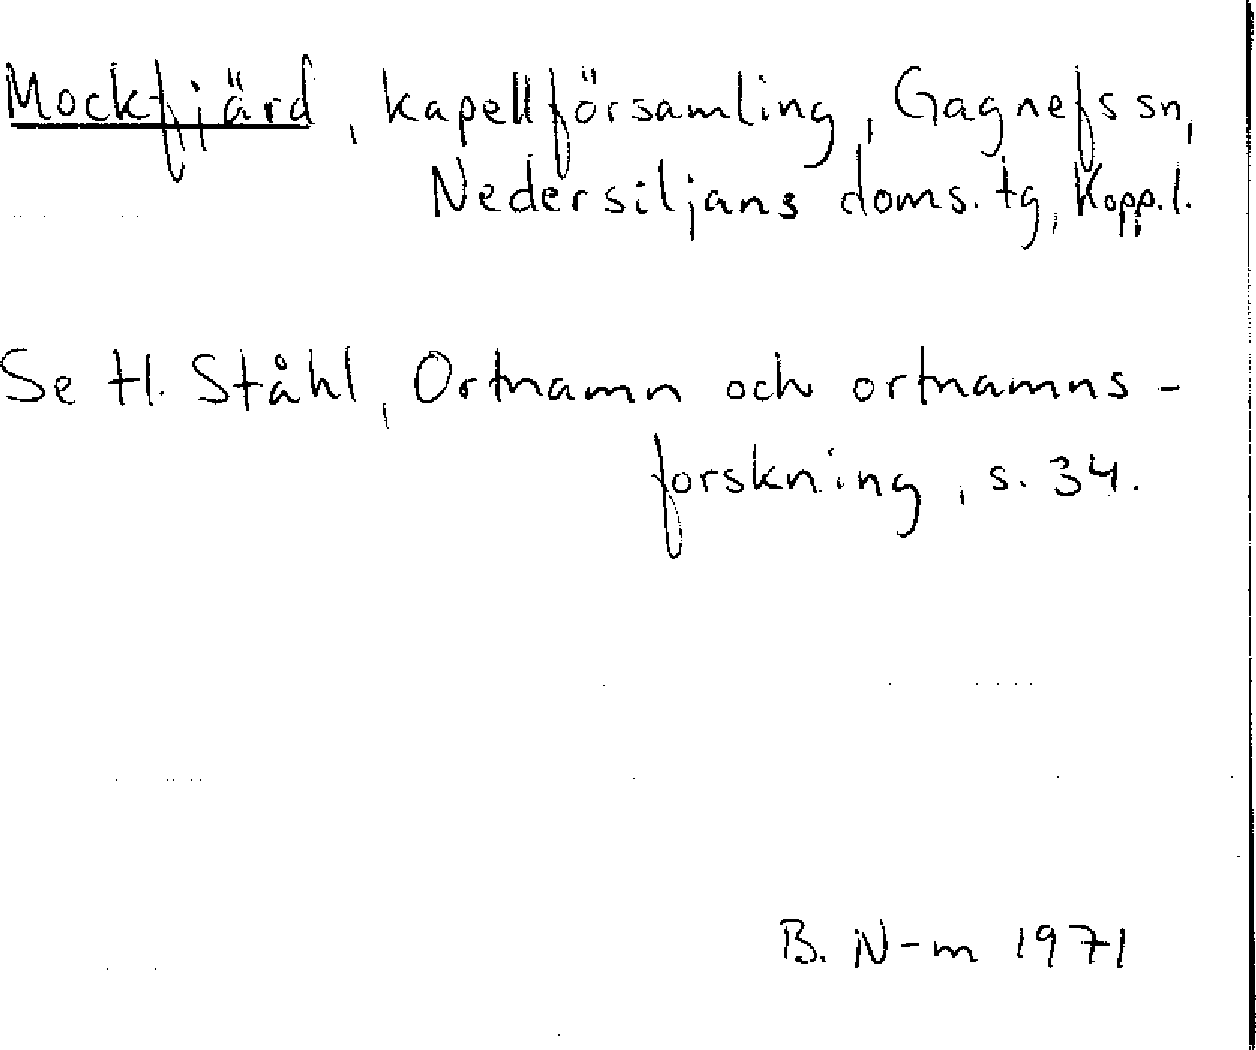 Mockfjärd, kapellförsamling, Gagnefs sn,
Nedersiljans doms. tg, Kopp.l.
Se H. Ståhl, Ortnamn och ortnamns-
forskning, s. 34.
B. N-m 1971